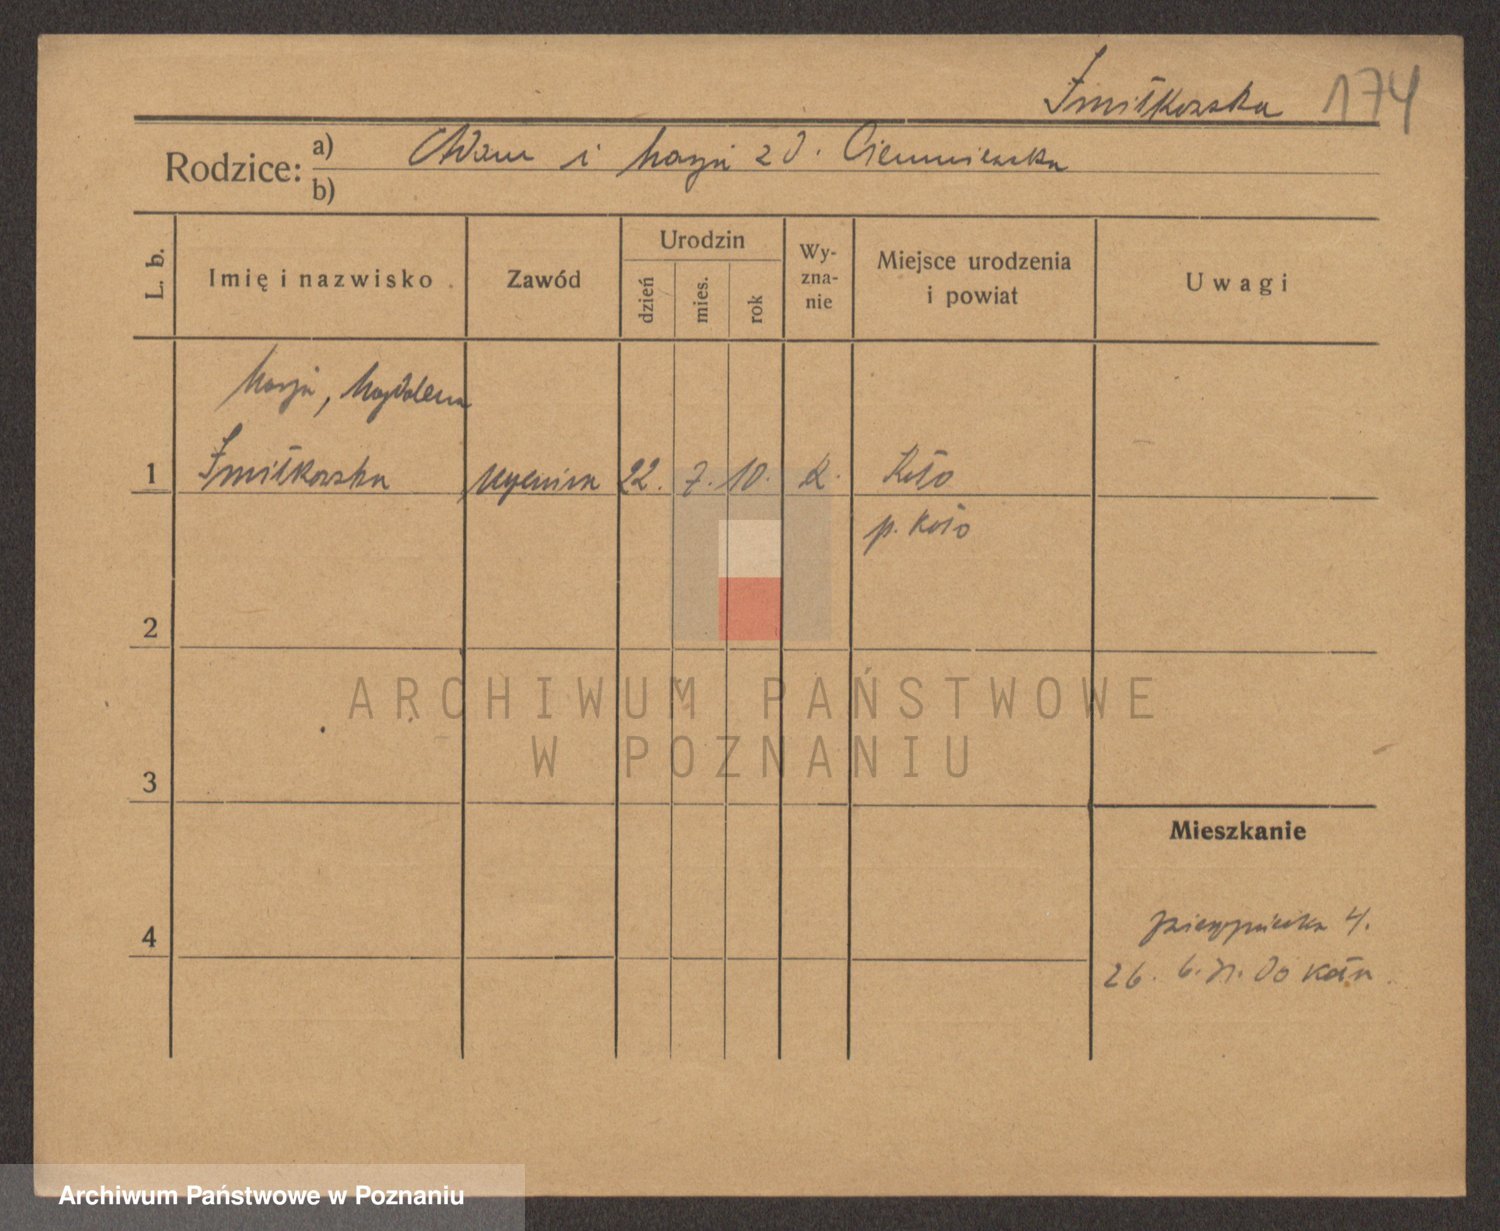 Żmiłkowska 174
Rodzice: a) Adam i Marja z d.
b)
L. b. Imię i nazwisko Zawód Urodzin dzień mies. rok Wy-zna-nie Miejsce urodzenia i powiat Uwagi
Marja, Magdalena
1 Żmiłkowska uczenica 22. 7. 10. k. Koło
p. Koło
2
ARCHIWUM PAŃSTWOWE
W POZNANIU
3
Mieszkanie
4 4.
26. 6. do Koła
Archiwum Państwowe w Poznaniu